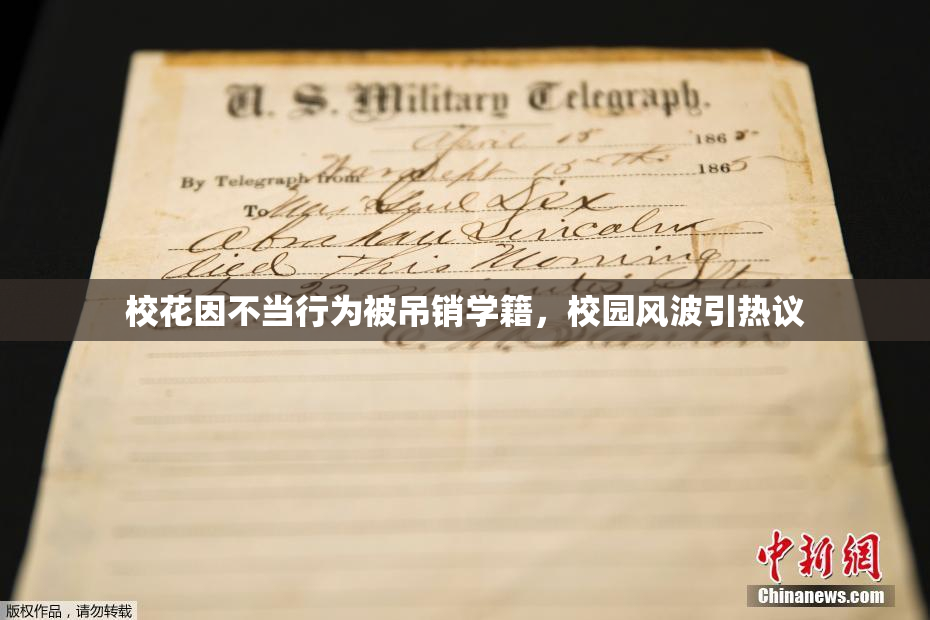 U. S. Military Telegraph.
April 15 1865
By Telegraph from War Dept 15th 1865
To Maj Genl Dix
Abraham Lincoln
died This Morning
at 22 minutes after
校花因不当行为被吊销学籍，校园风波引热议
E. M. Stanton
中新網
Chinanews.com
版权作品，请勿转载